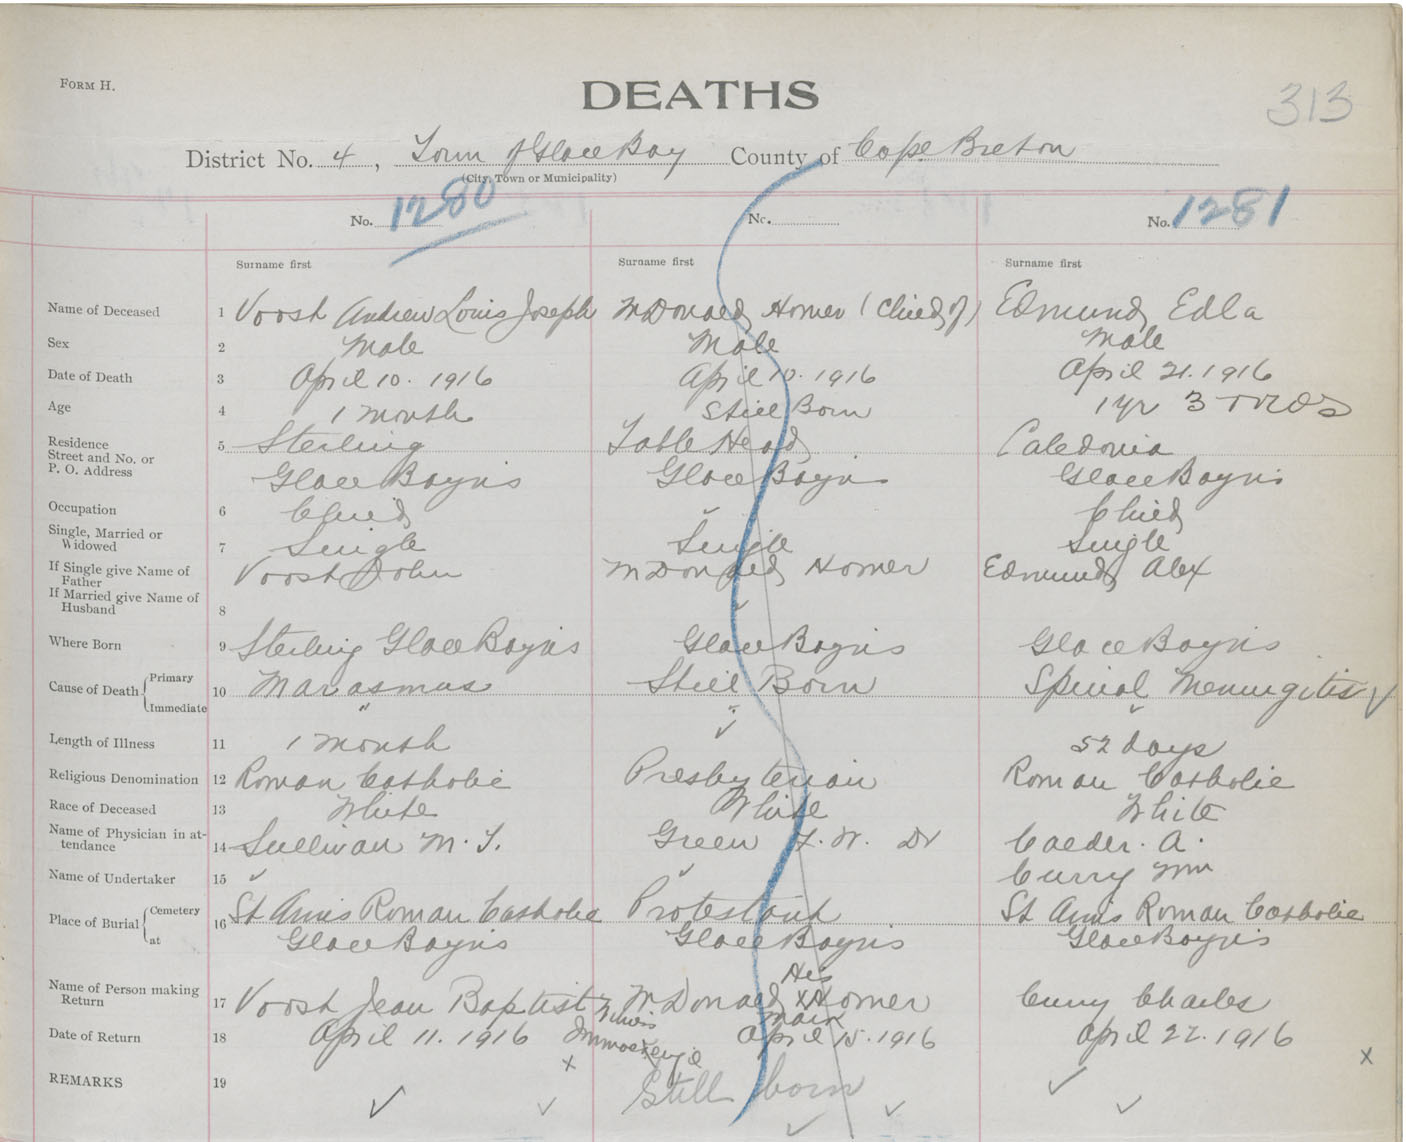 FORM H.
DEATHS
313
District No. 4, Town of Glace Bay County of Cape Breton
(City, Town or Municipality)
No. 1280 No. No. 1281
Surname first Surname first Surname first
Name of Deceased 1 Voosh Andrew Louis Joseph McDonald, Homer (Child of) Edmund, Edla
Sex 2 Male Male Male
Date of Death 3 April 10. 1916 April 10. 1916 April 21. 1916
Age 4 1 month Still Born 1 yr 3 mos
Residence
Street and No. or 5 Sterling Table Head Caledonia
P. O. Address Glace Bay NS Glace Bay NS Glace Bay NS
Occupation 6 Child " Child
Single, Married or
Widowed 7 Single Single Single
If Single give Name of
Father Voosh John McDonald, Homer Edmund, Alex
If Married give Name of
Husband 8
Where Born 9 Sterling Glace Bay NS Glace Bay NS Glace Bay NS
Cause of Death Primary 10 Marasmus Still Born Spinal Meningitis
Immediate " "
Length of Illness 11 1 month 52 days
Religious Denomination 12 Roman Catholic Presbyterian Roman Catholic
Race of Deceased 13 White White White
Name of Physician in at-
tendance 14 Sullivan M. T. Green F. W. Dr Calder. A.
Name of Undertaker 15 Curry Wm
Place of Burial Cemetery 16 St Anns Roman Catholic Protestant St Anns Roman Catholic
at Glace Bay NS Glace Bay NS Glace Bay NS
Name of Person making
Return 17 Voosh Jean Baptist McDonald, His X Homer Mark Curry Charles
Witness
Date of Return 18 April 11. 1916 April 15. 1916 April 22. 1916
x x
REMARKS 19 Still born